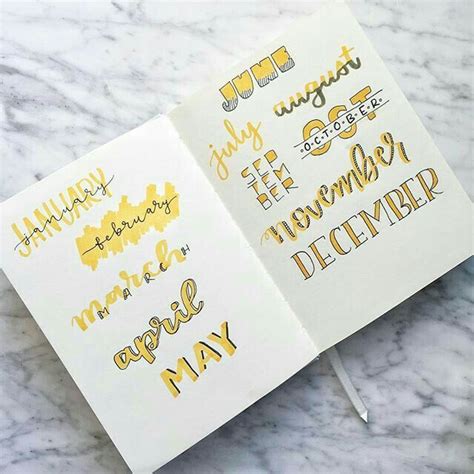 JANUARY
january
february
march
MARCH
april
MAY
JUNE
july
august
SEP
TEM
BER
OCT
OCTOBER
november
DECEMBER